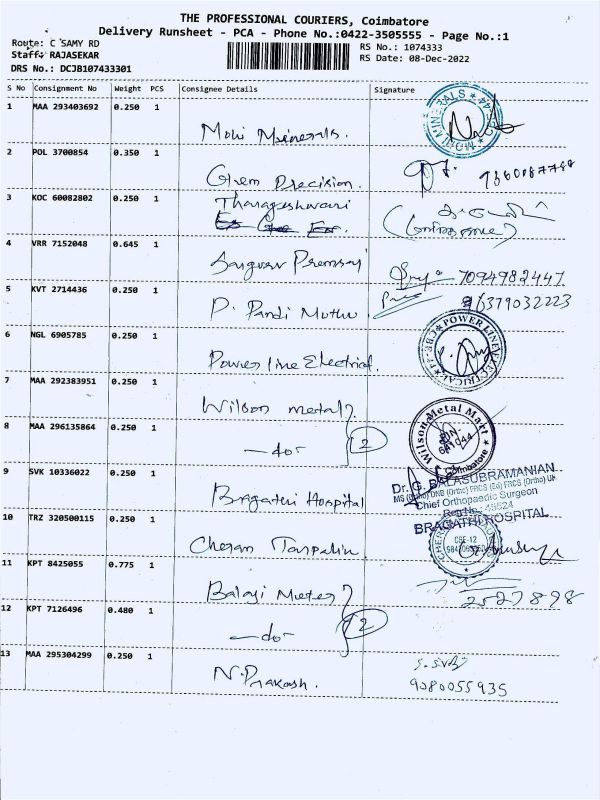 THE PROFESSIONAL COURIERS, Coimbatore
Delivery Runsheet - PCA - Phone No.:0422-3505555 - Page No.:1
Route: C SAMY RD
Staff: RAJASEKAR
DRS No.: DCJB107433301
RS No.: 1074333
RS Date: 08-Dec-2022
S No Consignment No Weight PCS Consignee Details Signature
1 MAA 293403692 0.250 1 Mohi Minerals.
MOHI MINERALS
2 POL 3700854 0.350 1 Gem Precision.
3 KOC 60082802 0.250 1 Tharageshwari
4 VRR 7152048 0.645 1 Premsai
7094982447
5 KVT 2714436 0.250 1 P. Pandi Muthu
6379032223
6 NGL 6905785 0.250 1 Power line Electrical.
POWER LINE ELECTRICAL CBE-44
7 MAA 292383951 0.250 1 Wilson metal
8 MAA 296135864 0.250 1 -do- 2
Wilson Metal Mart
PIN-
641044
Coimbatore
9 SVK 10336022 0.250 1 Bragathi Hospital
Dr. G. BALASUBRAMANIAN
MS (Ortho) DNB (Ortho) FRCS (Ed) FRCS (Ortho) UK
Chief Orthopaedic Surgeon
Reg No: 45524
BRAGATHI HOSPITAL
10 TRZ 320500115 0.250 1 Cheran Tarpalin
CBE-12
11 KPT 8425055 0.775 1 Balaji Meter
2527898
12 KPT 7126496 0.480 1 -do- 2
13 MAA 295304299 0.250 1 N. Prakash.
9080055935